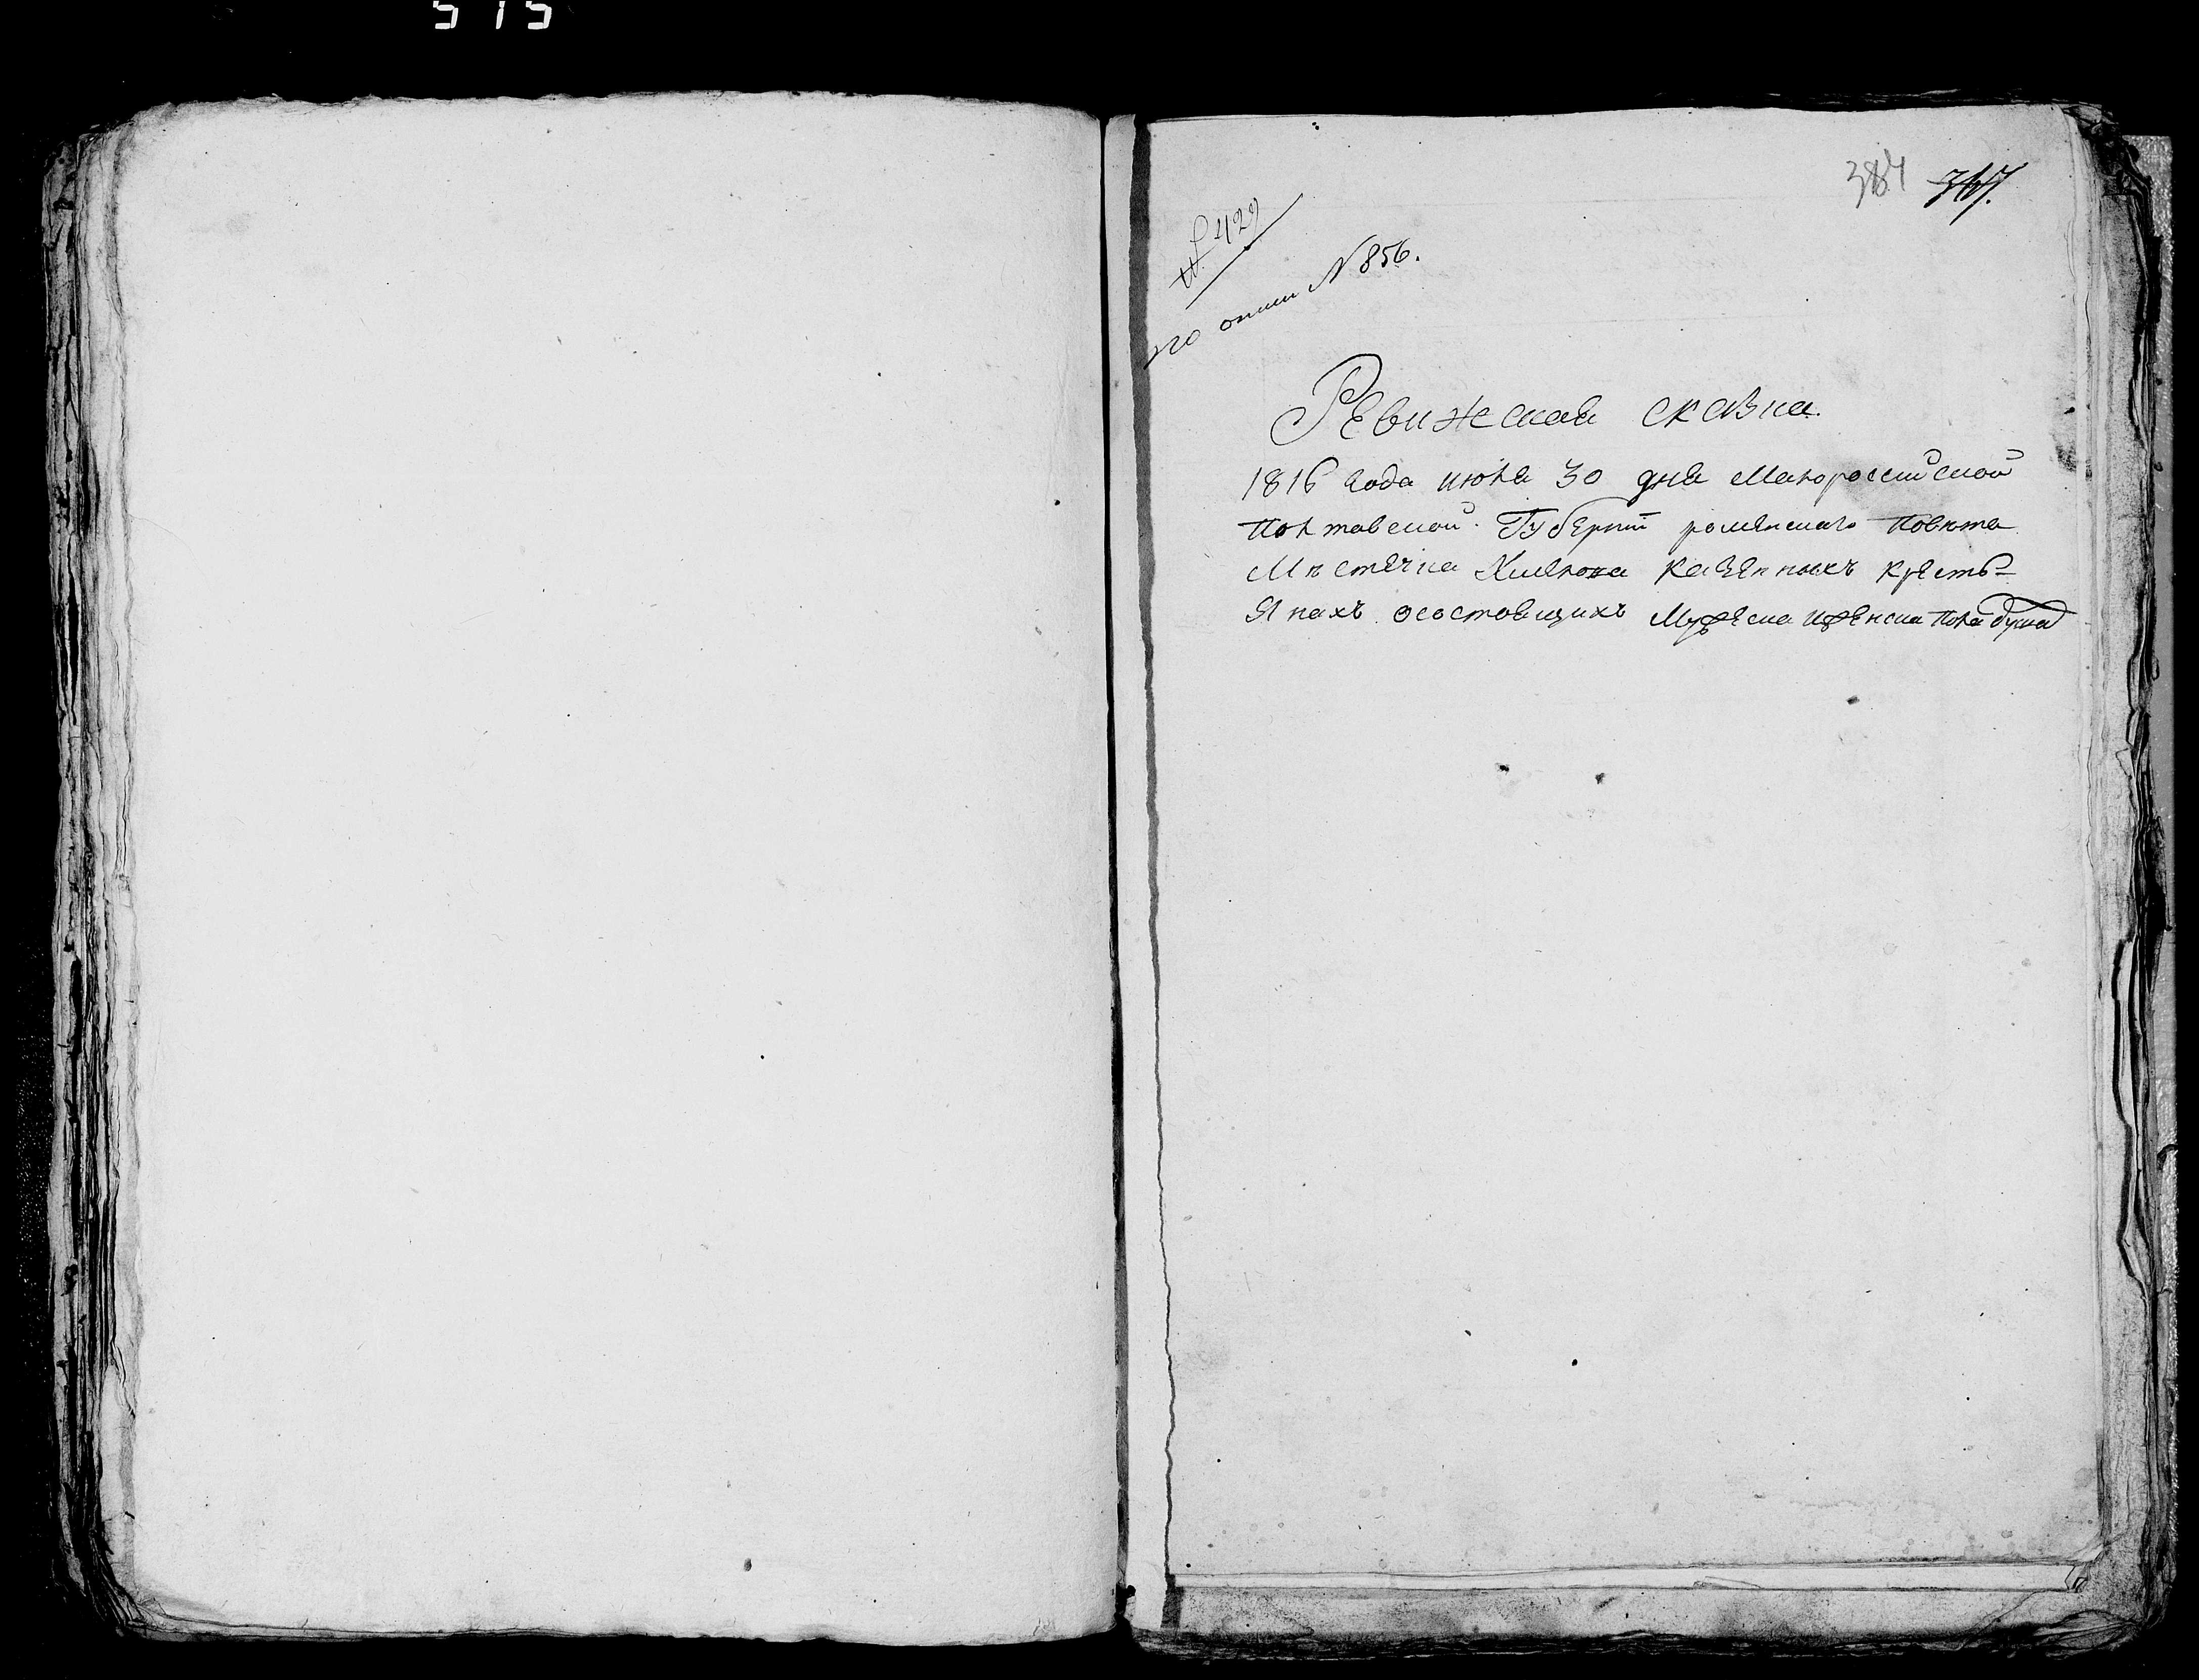 515
384 367.
№ 429
по описи № 856.
Ревижская сказка.
1816 года июля 30 дня Малороссийской
Полтавской Губернїи роменскаго Повѣта
Мѣстечка Хмелова казенныхъ кресть-
янахъ осостоящихъ Мужеска иженска пола душах